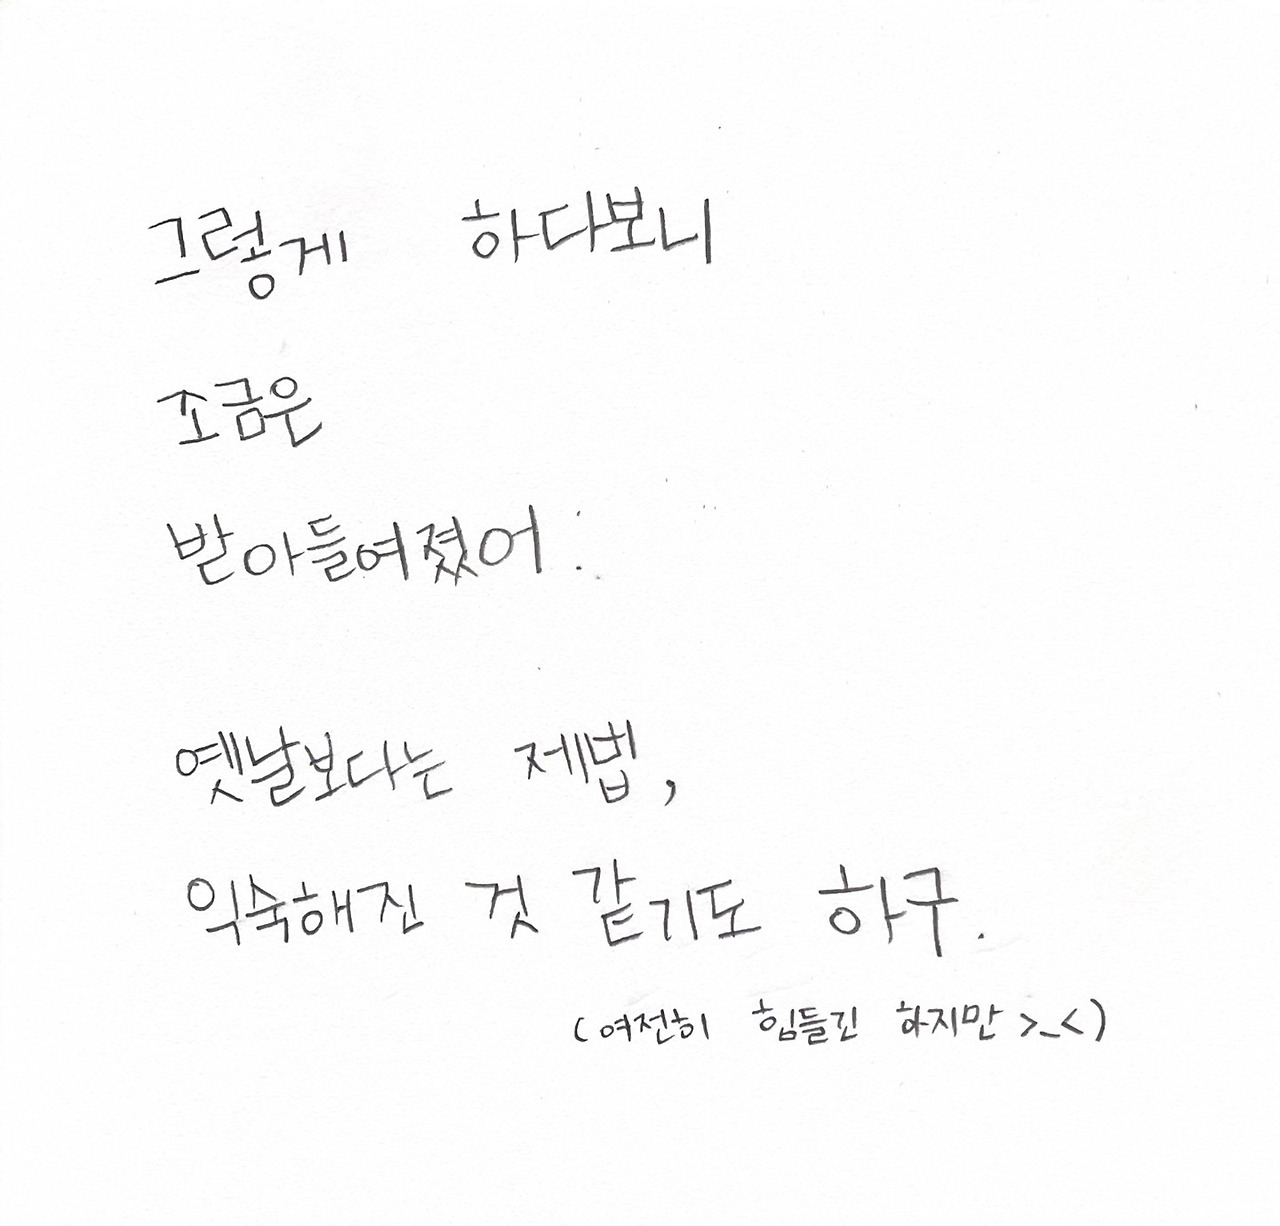 그렇게 하다보니
조금은
받아들여졌어.
옛날보다는 제법,
익숙해진 것 같기도 하구.
(여전히 힘들긴 하지만 >_<)